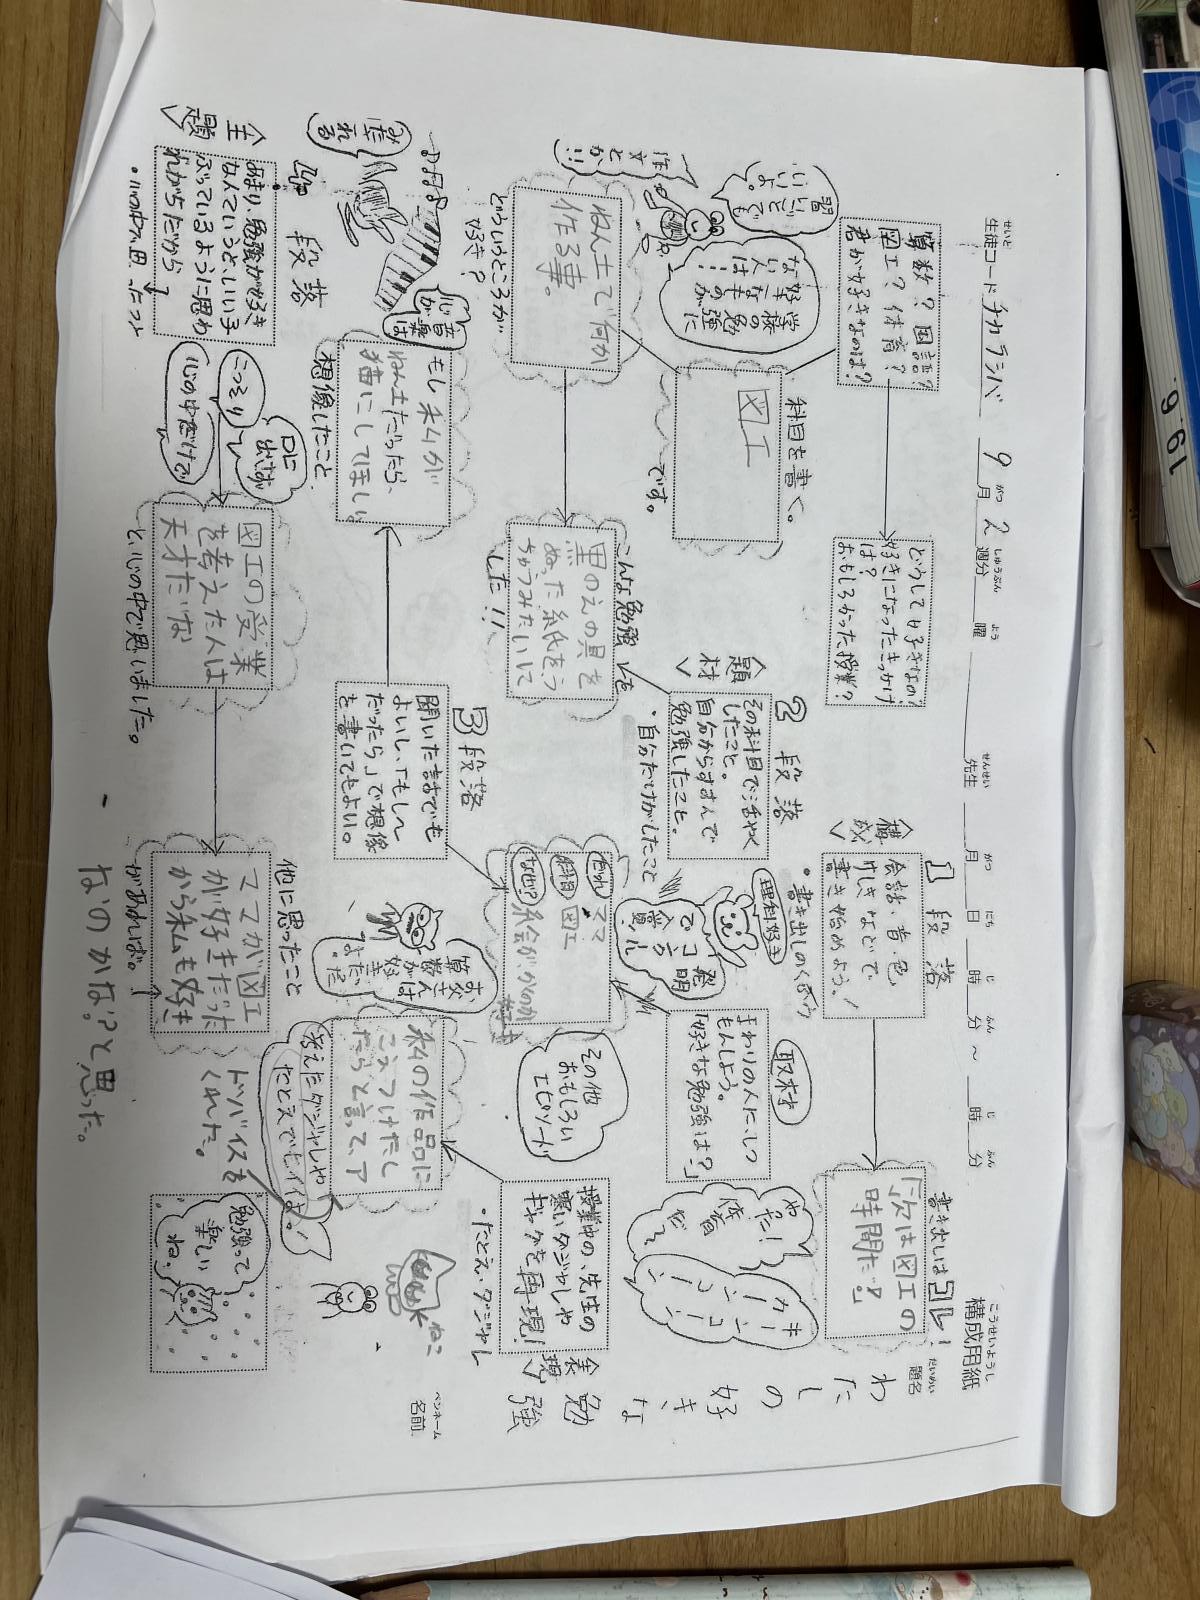 構成用紙
こうせいようし
生徒コード チカラシバ 9月2週分 曜 先生 月 日 時 分 ～ 時 分
せいと がつ しゅうぶん よう せんせい がつ にち じ ふん じ ふん
題名
だいめい
わたしの好きな勉強
ペンネーム
名前
書き出しはコレ!
「次は図工の
時間だ？」
1段落
＜構成＞
会話・音・色
けしきなどで
書き始めよう！
・書き出しのくふう
どうして好きなの？
好きになったきっかけ
は？
おもしろかった授業？
算数？国語？
図工？体育？
君が好きなのは？
キーンコーン
カーンコーン
やった！
体育
だ！
取材
まわりの人にしつ
もんしよう。
「好きな勉強は？」
理科好き
発明
でコウ
2段落
＜題材＞
その科目で活やく
したこと。
自分からすすんで
勉強したこと。
・自分だけがしたこと
科目を書く。
図工
です。
学校の勉強に
好きなものが
ない人は…
習いごとでも
いいよ。
作文とか!!
ねん土で何か
作る事。
どういうところが
好き？
こんな勉強を
黒のえの具を
ぬった紙をう
ちゅうみたいにして
した!!
だれ ママ
科目 図工
なぜ？ 絵がかくのが
好き
その他
おもしろい
エピソード
＜表現＞
授業中の、先生の
寒いダジャレや
ギャグを再現！
・たとえ・ダジャレ
3段落
聞いた話でも
よいし、「もし～
だったら」で想像
を書いてもよい。
お父さんは
算数が好き
だったよ。
音楽は
心が
みだれる
もし私が
ねん土だったら、
猫にしてほしい
想像したこと
私の作品に
こうつけたし
たらと言って、ア
ドバイスを
くれた。
考えたダジャレや
たとえでもイイよ！
ねこ
4段落
＜主題＞
あまり、勉強が好き
なんていうと、いい子
ぶっているように思わ
れがちだから
・心の中で思ったこと
口に
出さず
こっそり
心の中だけで
図工の授業
を考えた人は
天才だな
と、心の中で思いました。
他に思ったこと
ママが図工
が好きだった
から私も好き
があれば。
なのかな？と思った。
勉強って
楽しい
ね。
19.6